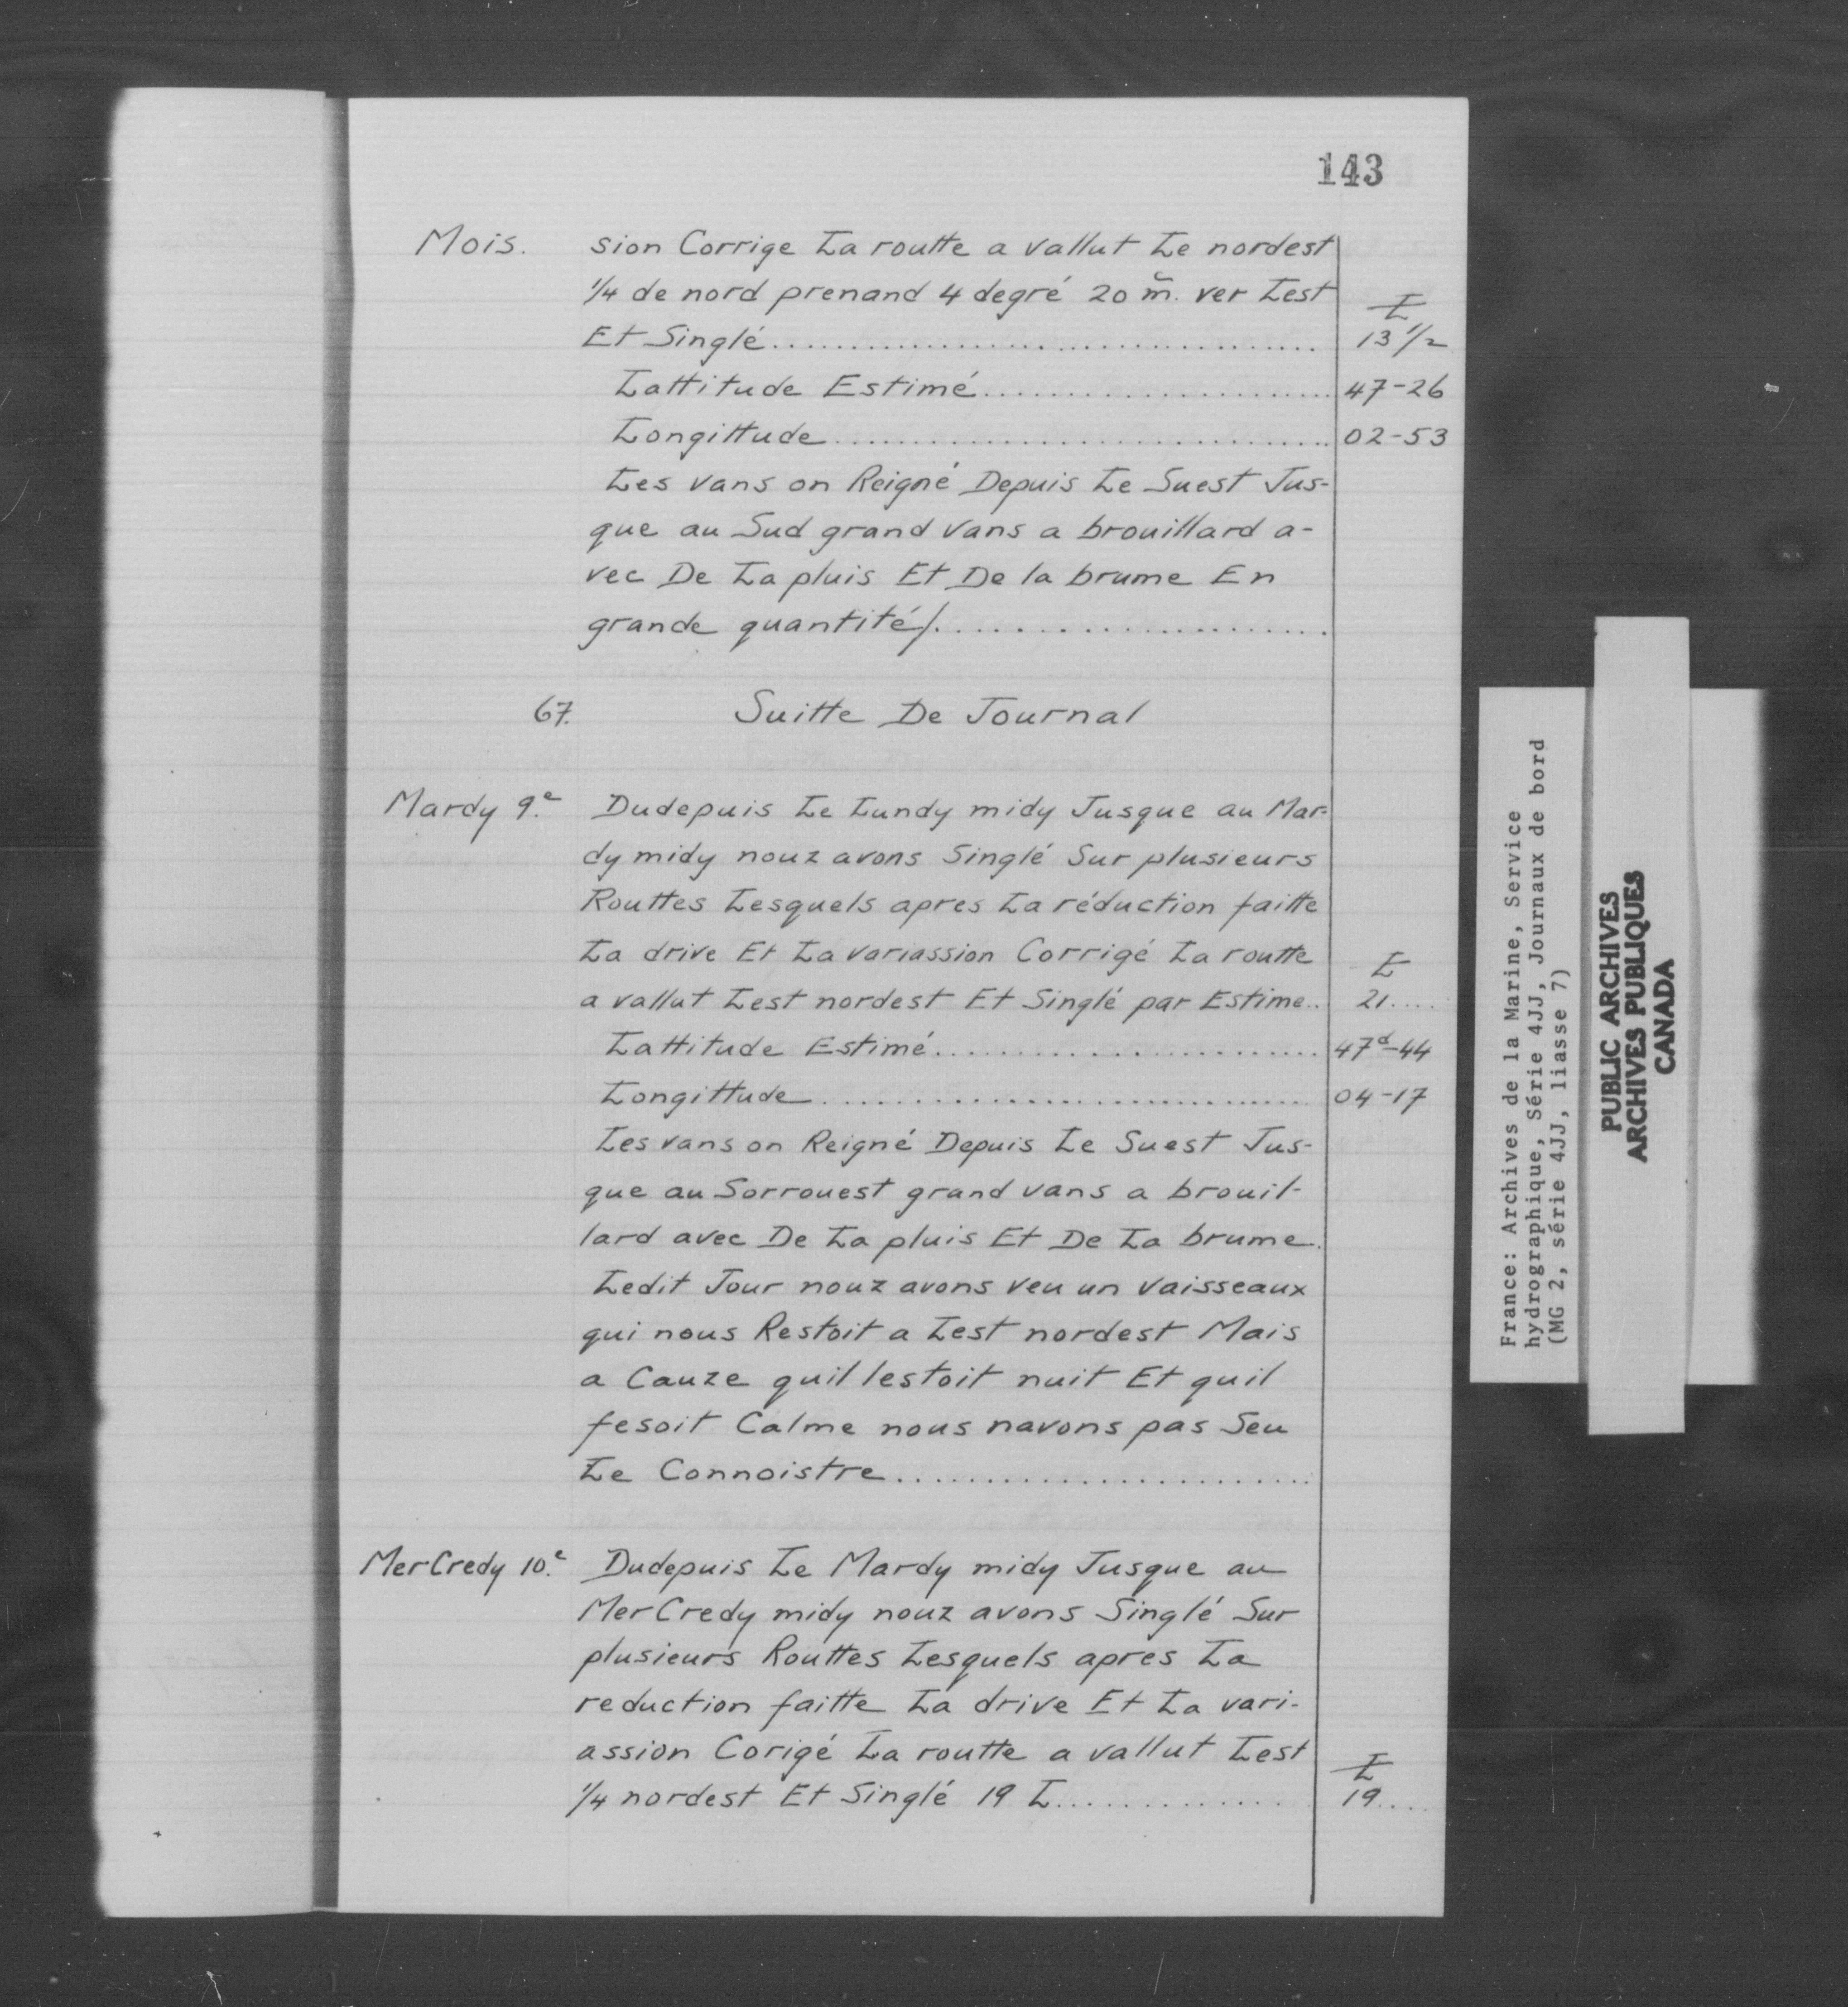 143
Mois. sion Corrige La routte a vallut Le nordest
1/4 de nord prenand 4 degré 20 m̃. ver Lest
L
Et Singlé.................................. 13 1/2
Lattitude Estimé...................... 47-26
Longittude............................... 02-53
Les vans on Reigné Depuis Le Suest Jus-
que au Sud grand vans a brouillard a-
vec De La pluis Et De la brume En
grande quantité/.........................
67. Suitte De Journal
Mardy 9.e Dudepuis Le Lundy midy Jusque au Mar-
dy midy nouz avons Singlé Sur plusieurs
Routtes Lesquels apres La réduction faitte
La drive Et La variassion Corrigé La routte L
a vallut Lest nordest Et Singlé par Estime.. 21....
Lattitude Estimé........................ 47d-44
Longittude............................... 04-17
Les vans on Reigné Depuis Le Suest Jus-
que au Sorrouest grand vans a brouil-
lard avec De La pluis Et De La brume.
Ledit Jour nouz avons veu un vaisseaux
qui nous Restoit a Lest nordest Mais
a Cauze quil lestoit nuit Et quil
fesoit Calme nous navons pas Seu
Le Connoistre..........................
MerCredy 10.e Dudepuis Le Mardy midy Jusque au
MerCredy midy nouz avons Singlé Sur
plusieurs Routtes Lesquels apres La
reduction faitte La drive Et La vari-
assion Corigé La routte a vallut Lest
L
1/4 nordest Et Singlé 19 L.............. 19....
France: Archives de la Marine, Service
hydrographique, Série 4JJ, Journaux de bord
(MG 2, série 4JJ, liasse 7)
PUBLIC ARCHIVES
ARCHIVES PUBLIQUES
CANADA